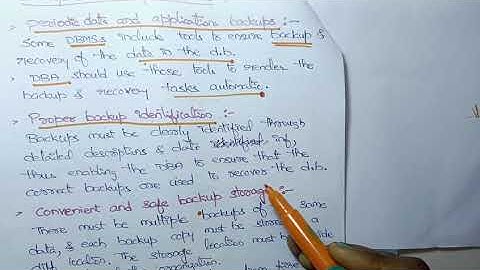 > Periodic data and application backups :-
Some DBMSs include tools to ensure backup &
recovery of the data in the d.b.
> DBA should use those tools to render the
backup & recovery tasks automatic.
> Proper backup identification :-
Backups must be clearly identified through
detailed descriptions & date inf,
thus enabling the DBA to ensure that the
correct backups are used to recover the d.b.
> Convenient and safe backup storage :-
There must be multiple backups of same
data, & each backup copy must be stored a
diff location. The storage location must be
organization.